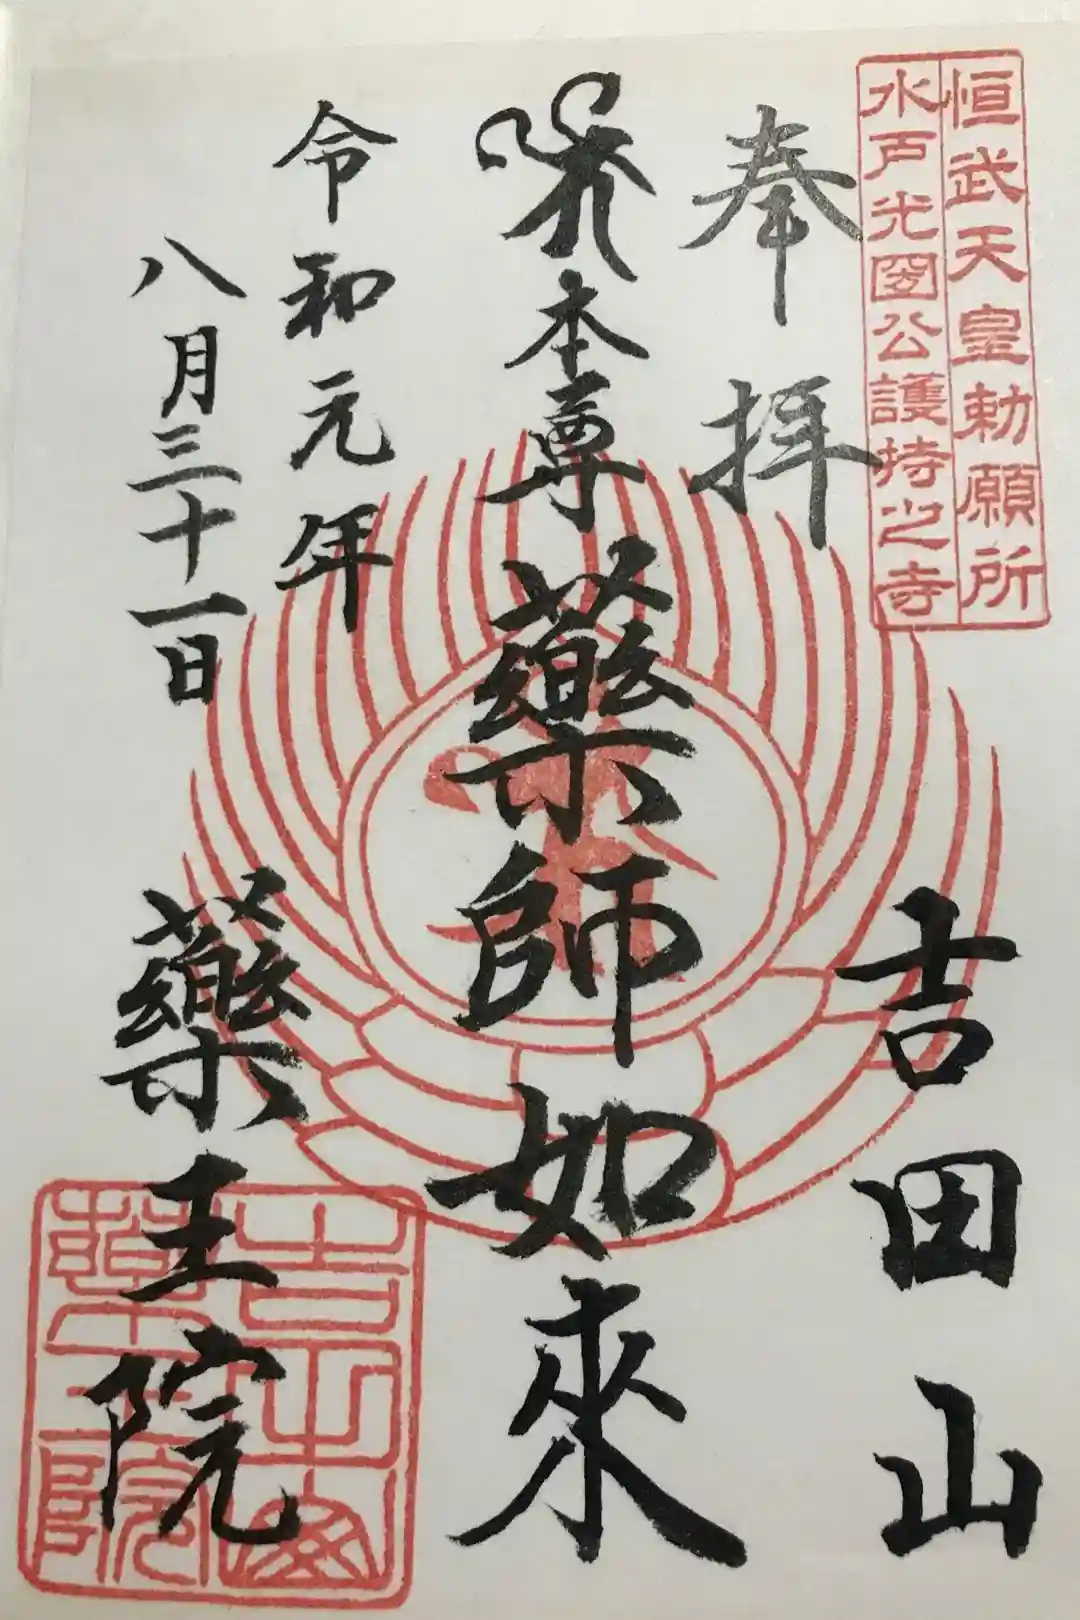 恒武天皇勅願所
水戸光圀公護持之寺
奉拝
吉田山
本尊
薬師如來
令和元年
八月三十一日
薬王院
吉田山
薬王院